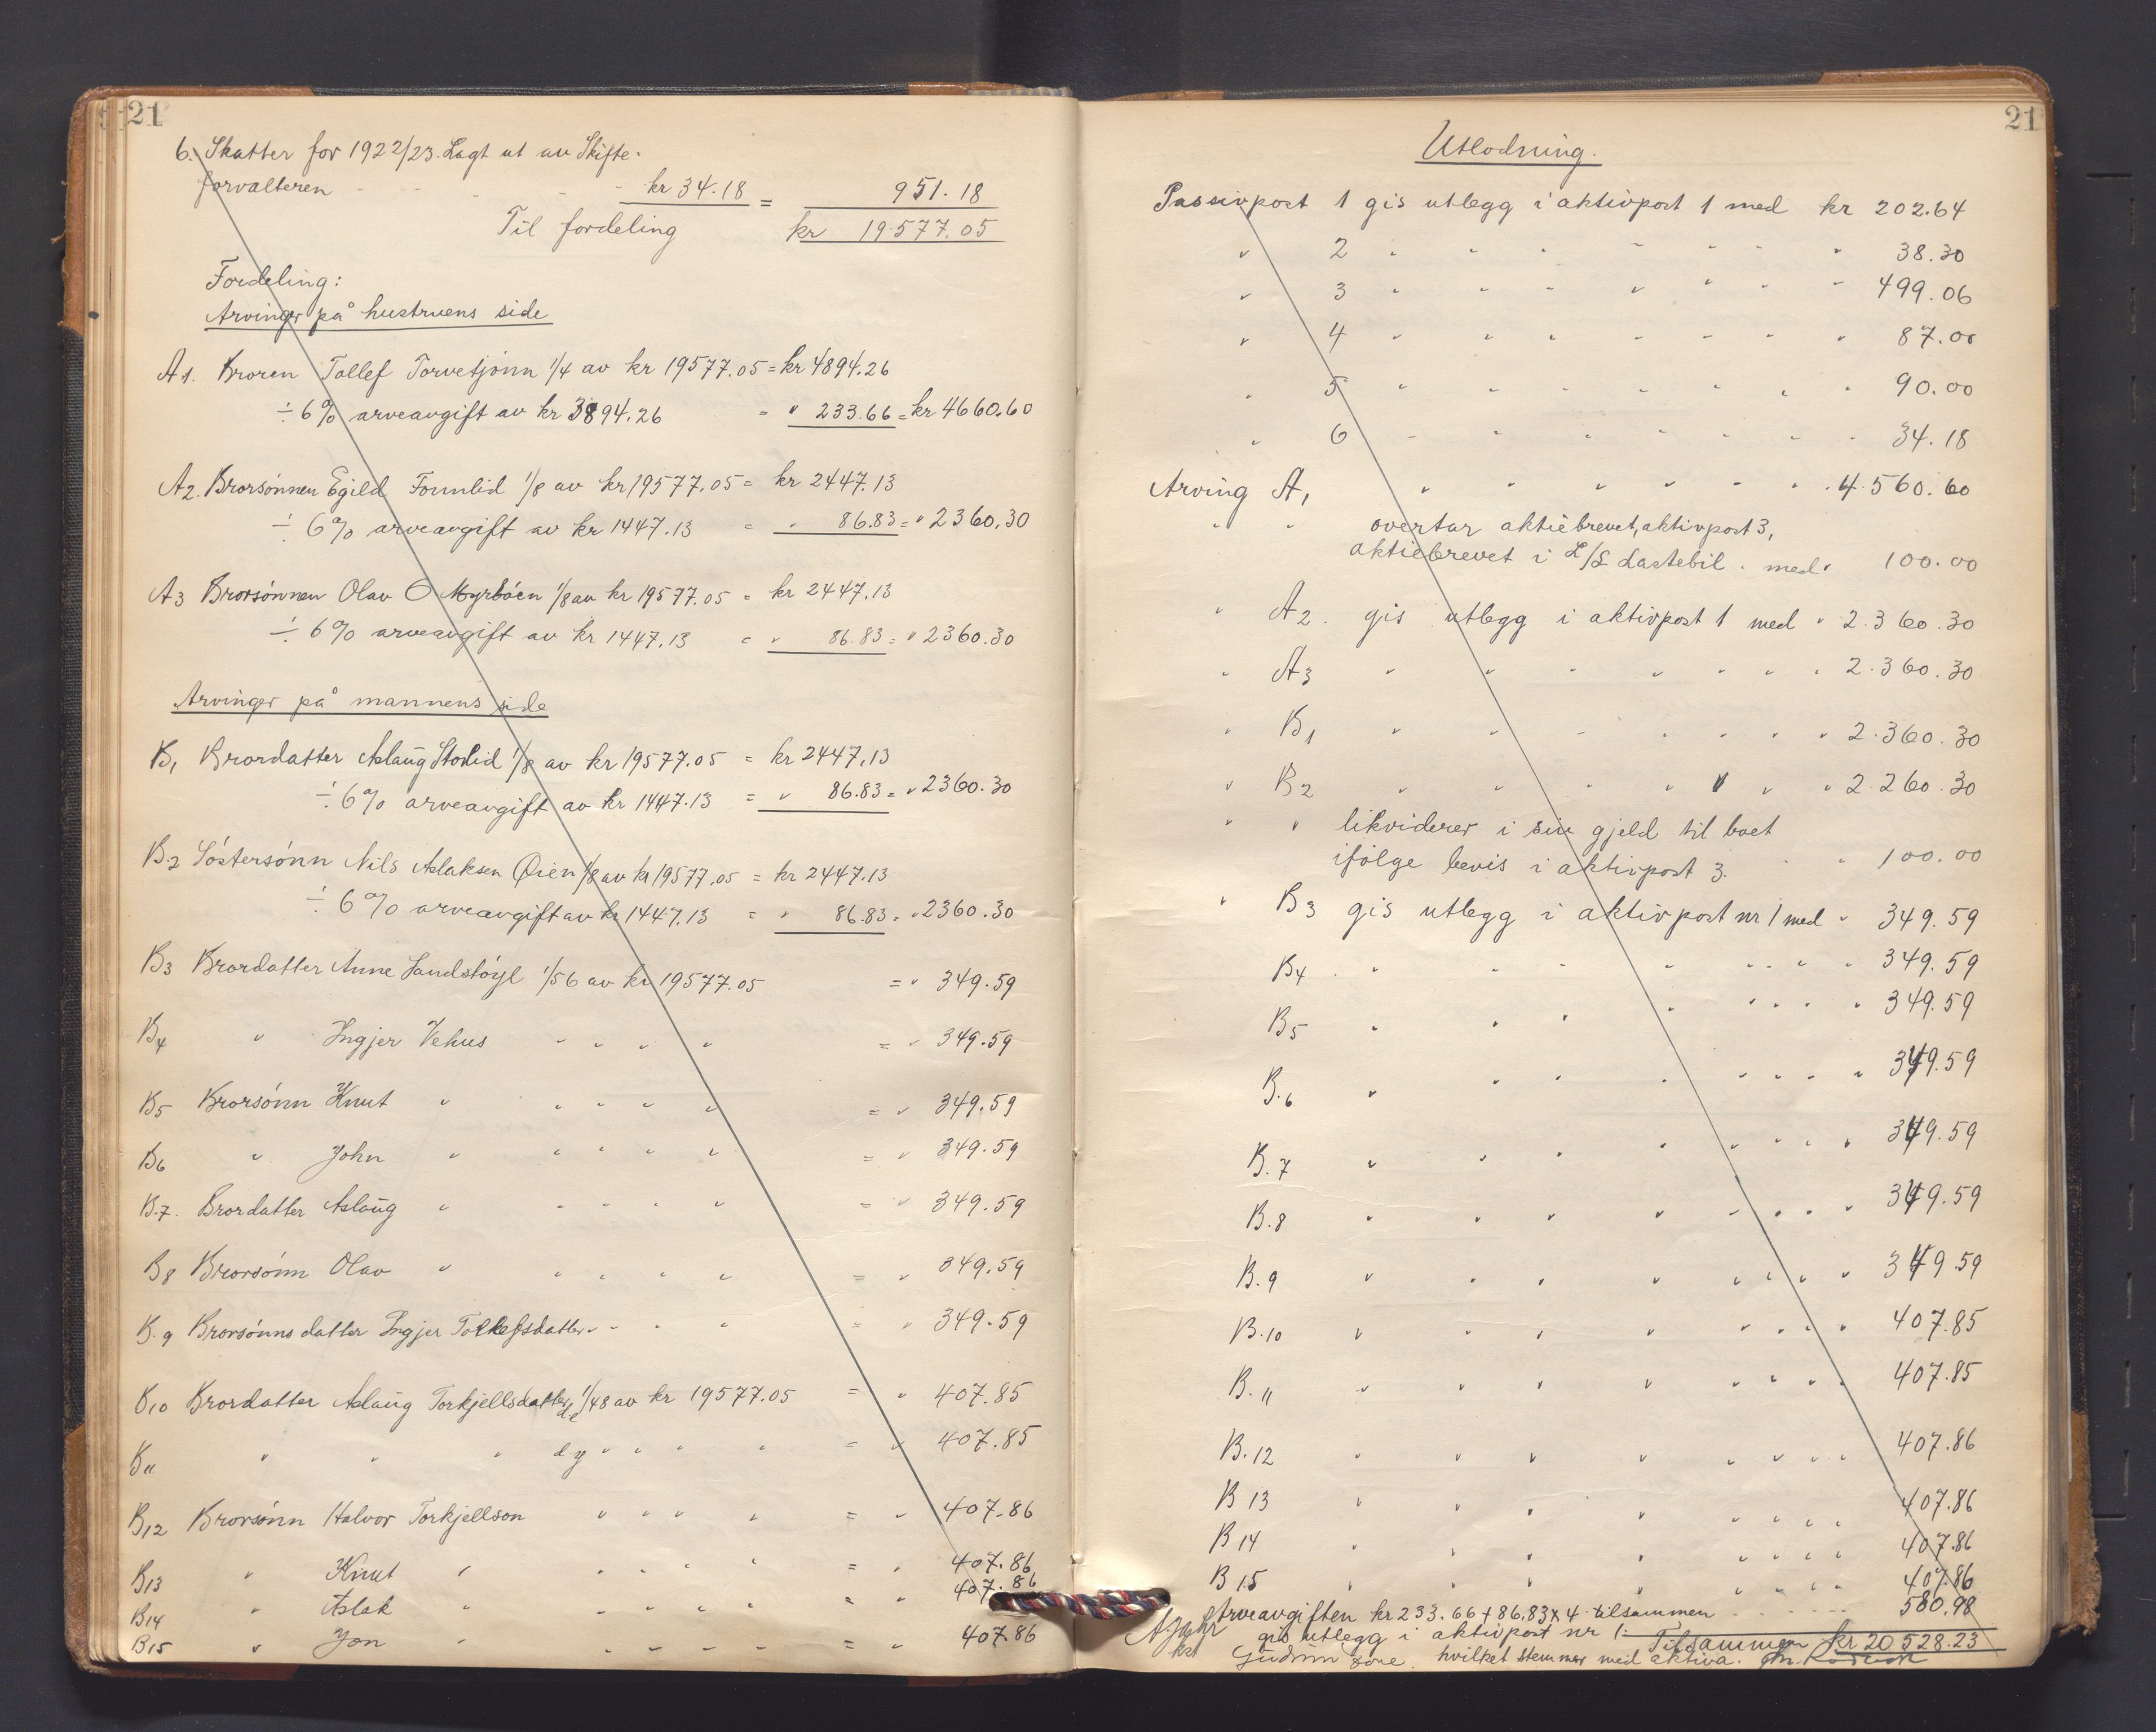 21
6. Skatter for 1922/23. Lagt ut av Skifte-
forvalteren - - - - - kr 34.18 = 951.18
Til fordeling kr 19.577.05
Fordeling:
Arvinger på hustruens side
A1. Broren Tollef Torvetjønn 1/4 av kr 19577.05 = kr 4894.26
÷ 6% arveavgift av kr 3894.26 = " 233.66 = kr 4660.60
A2. Brorsønnen Egild Fonnlid 1/8 av kr 19577.05 = kr 2447.13
÷ 6% arveavgift av kr 1447.13 = " 86.83 = " 2360.30
A3 Brorsønnen Olav O Myrböen 1/8 av kr 19577.05 = kr 2447.13
÷ 6% arveavgift av kr 1447.13 = " 86.83 = " 2360.30
Arvinger på mannens side
B1 Brordatter Aslaug Stovlid 1/8 av kr 19577.05 = kr 2447.13
÷ 6% arveavgift av kr 1447.13 = " 86.83 = " 2360.30
B.2 Söstersönn Nils Aslaksen Øien 1/8 av kr 19577.05 = kr 2447.13
÷ 6% arveavgift av kr 1447.13 = " 86.83 = " 2360.30
B3 Brordatter Anne Sandstöyl 1/56 av kr 19577.05 = " 349.59
B4 " Ingjer Vehus " " " " = " 349.59
B5 Brorsönn Knut " " " " " = " 349.59
B6 " John " " " " " = " 349.59
B.7. Brordatter Aslaug " " " " " = " 349.59
B8 Brorsönn Olav " " " " " = " 349.59
B.9 Brorsönns datter Ingjer Tollefsdatter " " " " = " 349.59
B10 Brordatter Aslaug Torkjellsdatter d.e. 1/48 av kr 19577.05 = " 407.85
B11 " " " d.y " " " " = " 407.85
B12 Brorsönn Halvor Torkjellson " " " " = " 407.86
B13 " Knut " " " " " = " 407.86
B14 " Aslak " " " " " = " 407.86
B15 " Jon " " " " " = " 407.86
21
Utlodning.
Passivpost 1 gis utlegg i aktivpost 1 med kr 202.64
" 2 " " " " " " " 38.30
" 3 " " " " " " " 499.06
" 4 " " " " " " " 87.00
" 5 " " " " " " " 90.00
" 6 " " " " " " " 34.18
Arving A1 " " " " " " " 4.560.60
" " overtar aktiebrevet, aktivpost 3,
aktiebrevet i L/L Lastebil . med " 100.00
" A2. gis utlegg i aktivpost 1 med " 2.360.30
" A3 " " " " " " " 2.360.30
" B1 " " " " " " " 2.360.30
" B2 " " " " " " " 2.260.30
" " likviderer i sin gjeld til boet
ifölge bevis i aktivpost 3. " " 100.00
" B3 gis utlegg i aktivpost nr 1 med " 349.59
B4 " " " " " " " " 349.59
B5 " " " " " " " " 349.59
B.6 " " " " " " " " 349.59
B.7 " " " " " " " " 349.59
B.8 " " " " " " " " 349.59
B.9 " " " " " " " " 349.59
B.10 " " " " " " " " 407.85
B.11 " " " " " " " " 407.85
B.12 " " " " " " " " 407.86
B 13 " " " " " " " " 407.86
B 14 " " " " " " " " 407.86
B 15 " " " " " " " " 407.86
Arveavgiften kr 233.66 + 86.83 x 4 tilsammen - - - - 580.98
gis utlegg i aktivpost nr 1. Tilsammen kr 20 528.23
Gudrun hvilket stemmer med aktiva.